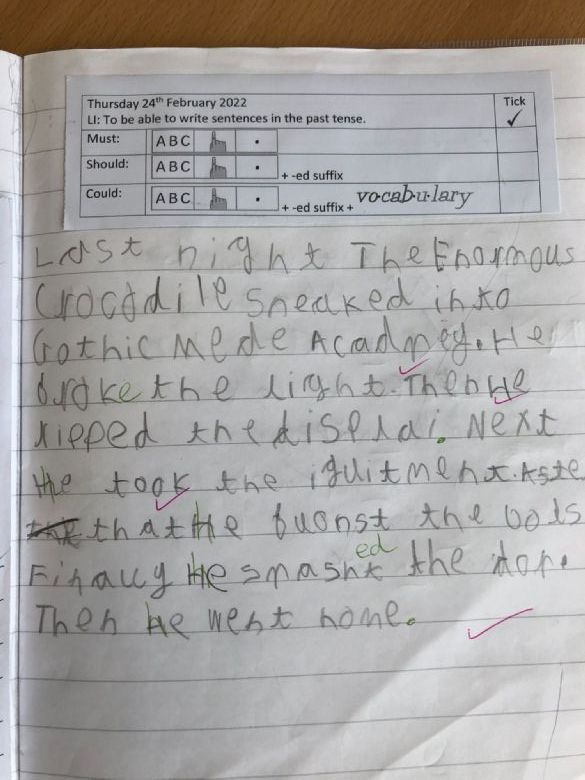 Thursday 24th February 2022
LI: To be able to write sentences in the past tense.
Tick
✓
Must: ABC .
Should: ABC . + -ed suffix
Could: ABC . + -ed suffix + vocabulary
Last night The Enormous
Crocodile sneaked into
Gothic Mede Acadmey. He
broke the light. Then He
ripped the displai. Next
He took the iquitment. Aste
that He buonst the bods
ed
Finally He smasht the dor.
Then he went home.